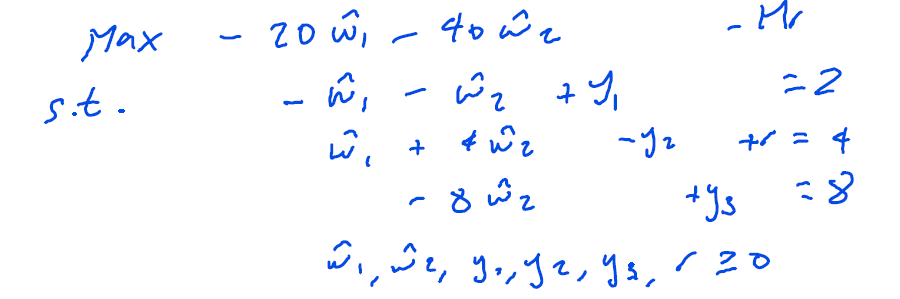 Max - 20 ŵ₁ - 40 ŵ₂ - Mr
s.t. - ŵ₁ - ŵ₂ + y₁ = 2
ŵ₁ + 4 ŵ₂ - y₂ + r = 4
- 8 ŵ₂ + y₃ = 8
ŵ₁, ŵ₂, y₁, y₂, y₃, r ≥ 0